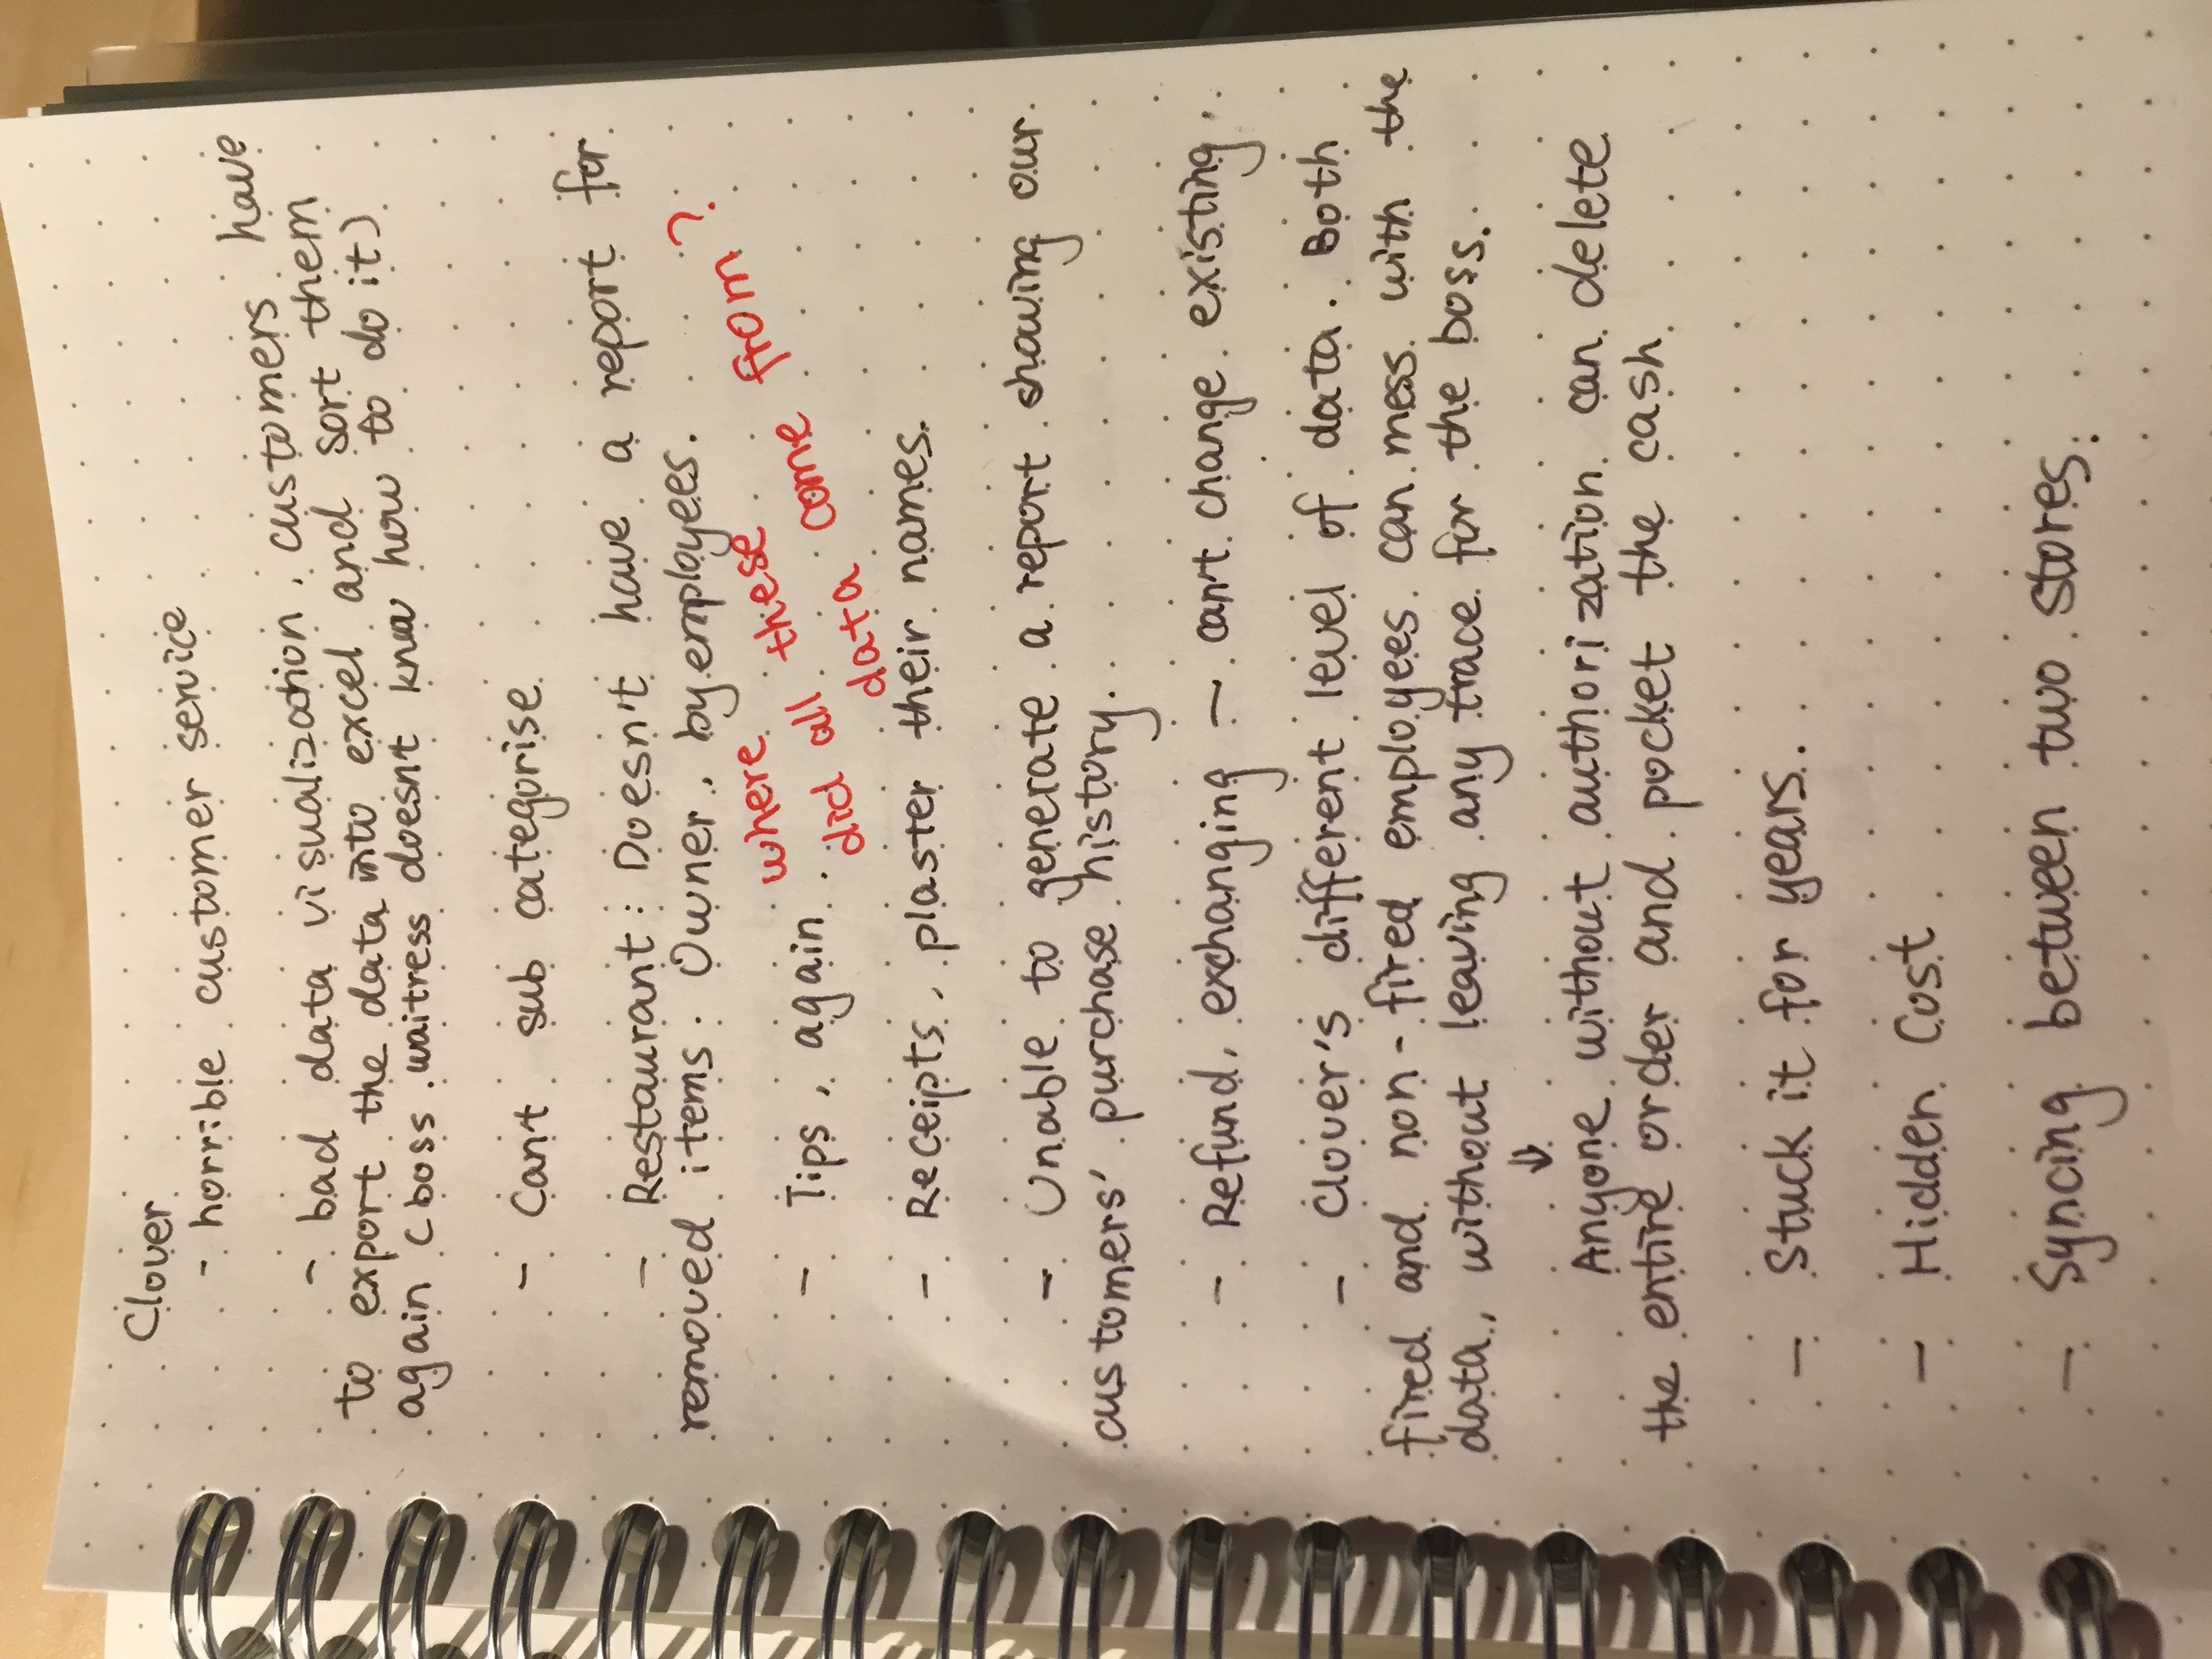 Clover
- horrible customer service
- bad data visualization, customers have
to export the data into excel and sort them
again (boss, waitress doesn't know how to do it)
- Can't sub categorise
- Restaurant: Doesn't have a report for
removed items. Owner, by employees.
- Tips, again
where
did all these
data come from?
- Receipts, plaster their names.
- Unable to generate a report showing our
customers' purchase history.
- Refund, exchanging — can't change existing.
- Clover's different level of data. Both
fired and non-fired employees can mess with the
data, without leaving any trace for the boss.
⇓
Anyone without authorization can delete
the entire order and pocket the cash
- Stuck it for years.
- Hidden Cost
- Syncing between two stores.